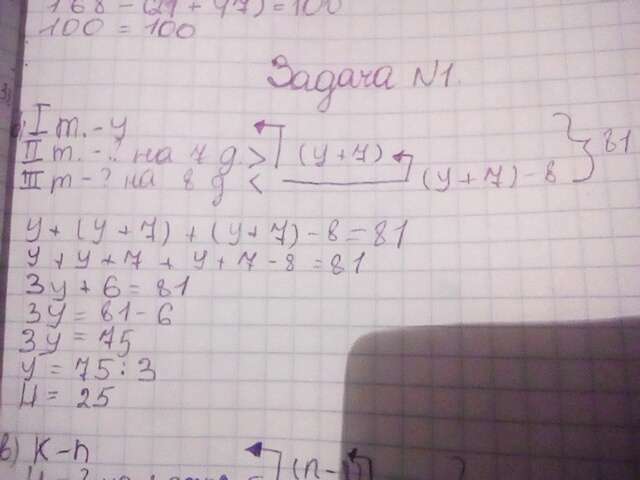 168 - (21 + 47) = 100
100 = 100
Задача N1.
I т. - y
II т. - ? на 7 д. > (y + 7)
III т - ? на 8 д < (y + 7) - 8 } 81
y + (y + 7) + (y + 7) - 8 = 81
y + y + 7 + y + 7 - 8 = 81
3y + 6 = 81
3y = 81 - 6
3y = 75
y = 75 : 3
y = 25
в) К - n